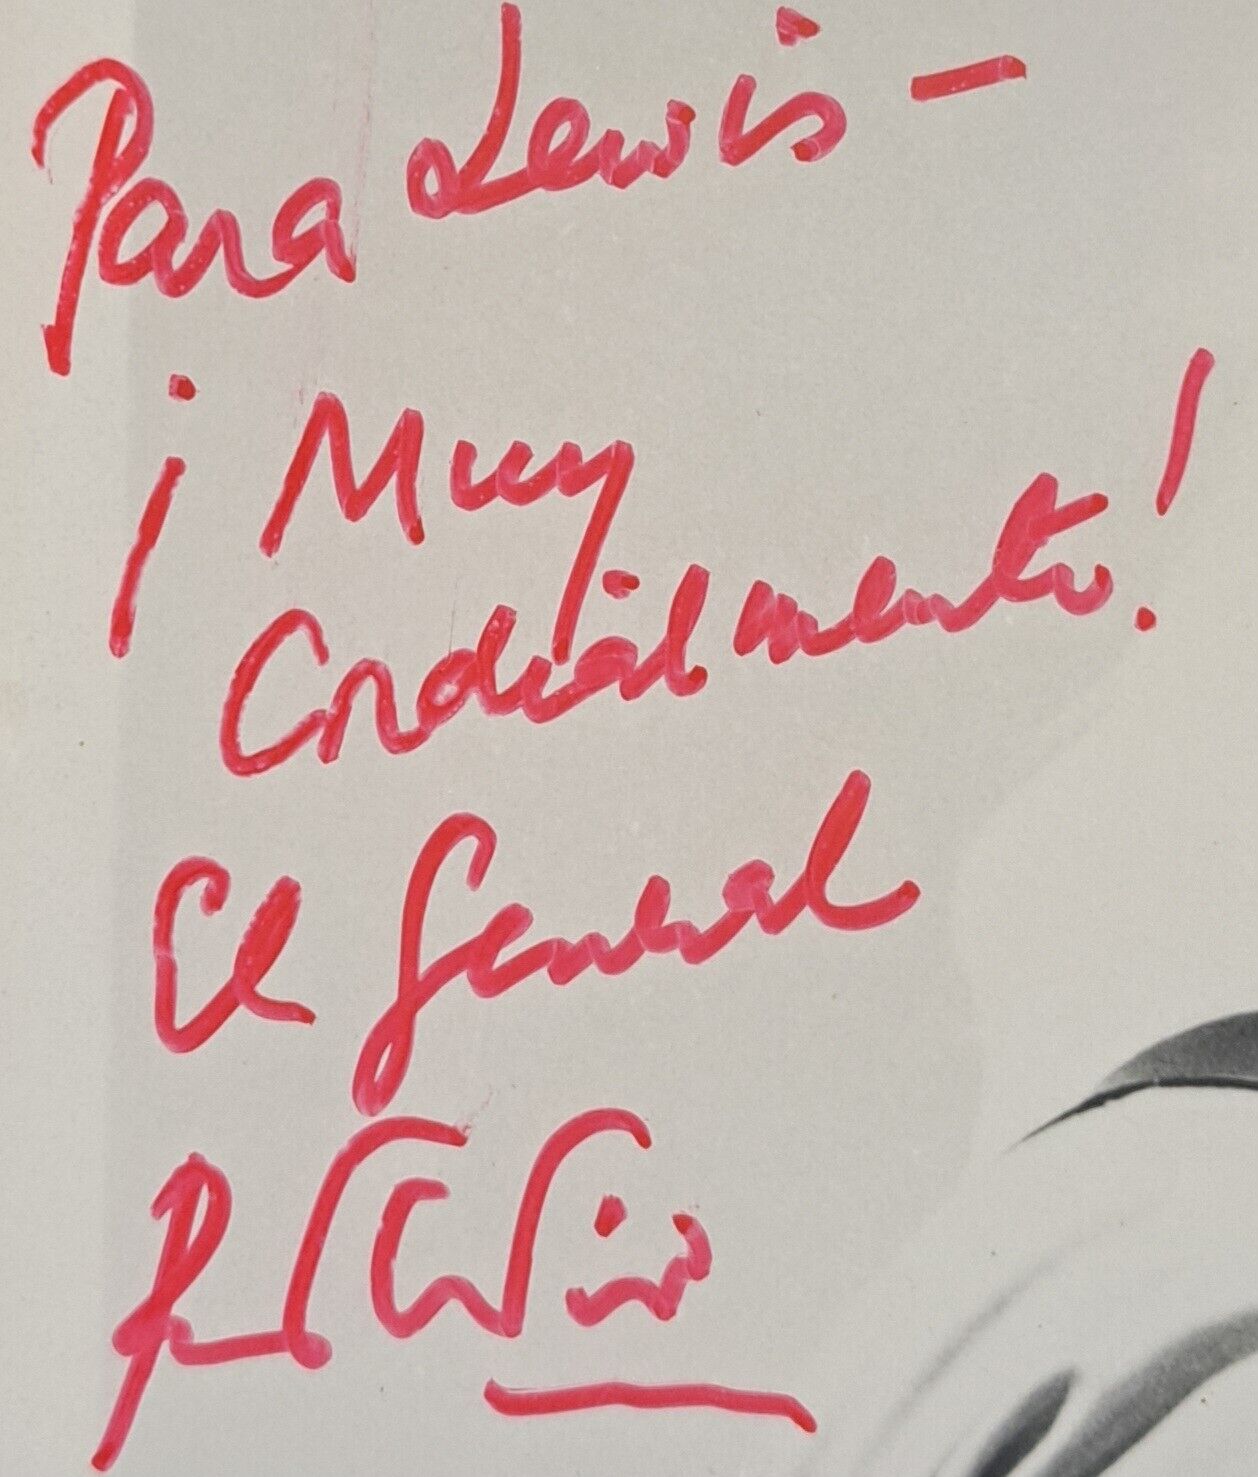 Para Lewis —
¡Muy
Cordialmente!
El General